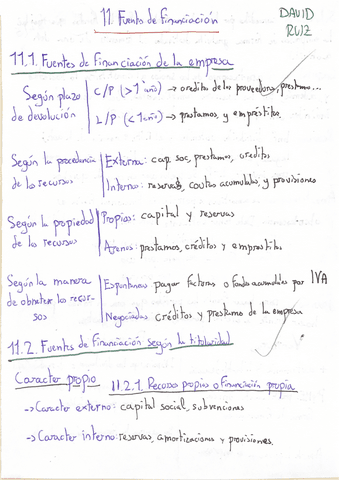 11. Fuente de financiación
DAVID
RUIZ
11.1. Fuentes de financiación de la empresa
Según plazo de devolución
C/P (>1 año) → credito de los proveedores, prestamo...
L/P (<1 año) → prestamos, y empréstitos.
Según la procedencia de los recursos
Externa: cap. soc, prestamos, creditos
Interna: reservas, cuotas acumulados, y provisiones
Según la propiedad de los recursos
Propios: capital y reservas
Ajenos: prestamos, créditos y emprestitos
Según la manera de obtener los recursos
Espontaneos pagar facturas o fondos acumulables por IVA
Negociados créditos y prestamo de la empresa
11.2. Fuentes de financiación según la titularidad
Caracter propio 11.2.1. Recursos propios o financiación propia
→ Caracter externo: capital social, subvenciones
→ Caracter interno: reservas, amortizaciones y provisiones.